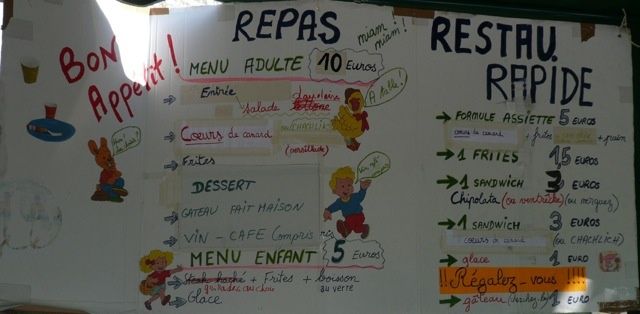 BON
Appetit !
REPAS
miam !
miam !
MENU ADULTE 10 Euros
Entrée
salade
A table !
Coeurs de canard ou CHACHLICH
(persillade)
Frites
DESSERT
GATEAU FAIT MAISON
VIN - CAFE (compris)
MENU ENFANT 5 Euros
Steak haché + Frites + boisson
au verre
Glace
RESTAU.
RAPIDE
FORMULE ASSIETTE 5 EUROS
coeurs de canard + frites + pain
1 FRITES 1,5 EUROS
1 SANDWICH 3 EUROS
Chipolata (ou ventrèche) (ou merguez)
1 SANDWICH 3 EUROS
coeurs de canard (ou CHACHLICH)
glace 1 EURO
!! Régalez-vous !!!!
gâteau 1 EURO